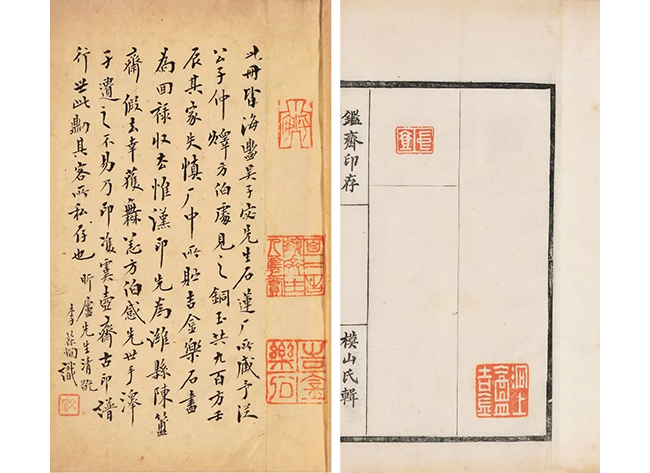 此冊皆海豐吳子苾先生石蓮厂所藏予從
公子仲懌方伯處見之銅玉共九百方壬
辰其家失慎厂中所貯吉金樂石盡
為回祿收去惟漢印先為濰縣陳簠
齋假去幸獲無恙方伯感先世手澤
孑遺之不易乃印雙虞壺齋古印譜
行世此則其客所私存也 昕廬先生清
李葆恂識
吉金樂石
鑑齋印存
模山氏輯